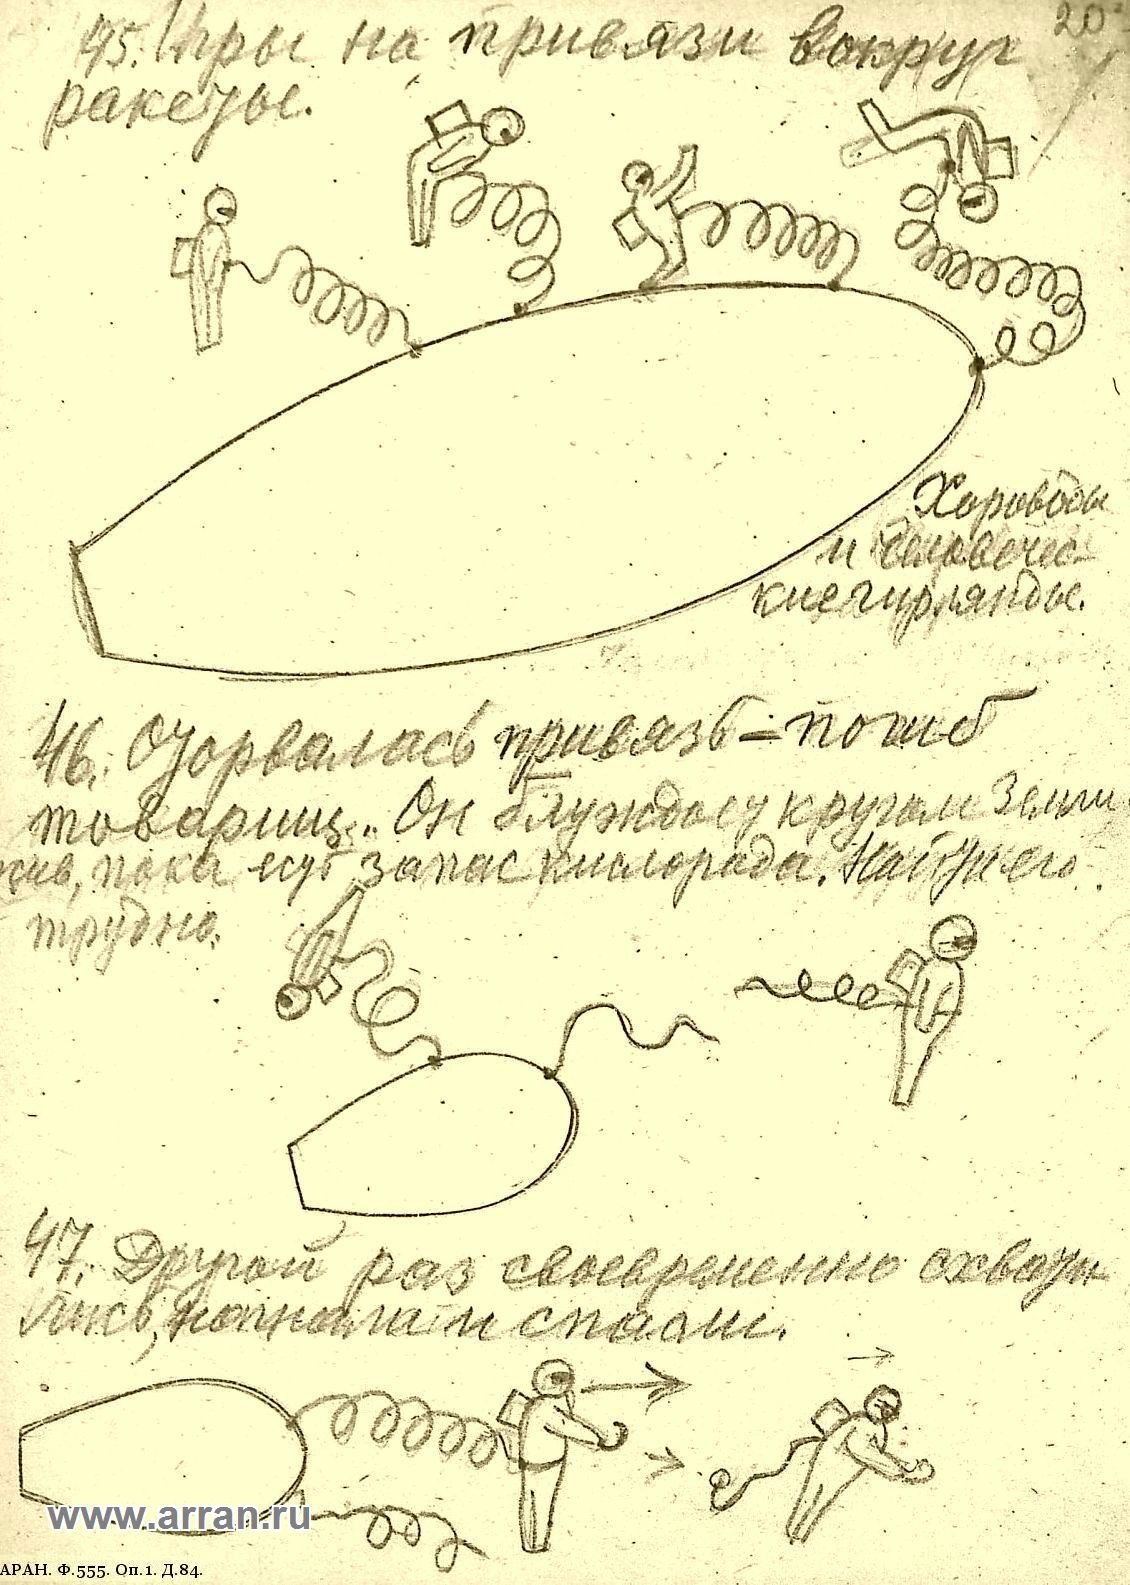 20
45. Игры на привязи вокруг
ракеты.
Хороводы
и человечес-
кие гирлянды.
46. Оторвалась привязь – погиб
товарищ. Он блуждает кругом Земли
жив, пока есть запас кислорода. Найти его
трудно.
47. Другой раз своевременно схвати-
лись, нагнали и спасли.
www.arran.ru
АРАН. Ф.555. Оп.1. Д.84.